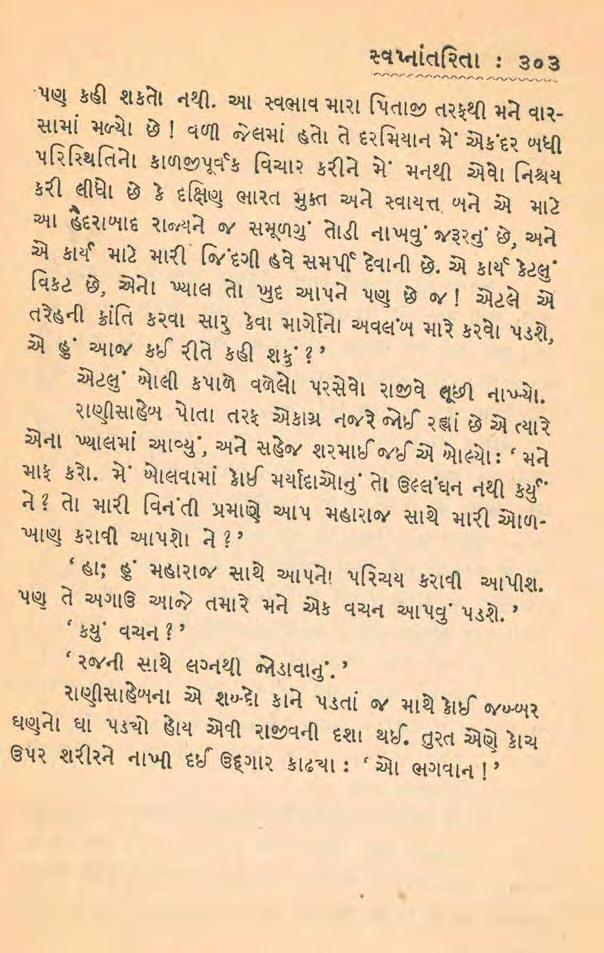 સ્વપ્નાંતરિતા : ૩૦૩
પણ કહી શકતો નથી. આ સ્વભાવ મારા પિતાજી તરફથી મને વાર-
સામાં મળ્યો છે ! વળી જેલમાં હતો તે દરમિયાન મેં એકંદર બધી
પરિસ્થિતિનો કાળજીપૂર્વક વિચાર કરીને મેં મનથી એવો નિશ્ચય
કરી લીધો છે કે દક્ષિણ ભારત મુક્ત અને સ્વાયત્ત બને એ માટે
આ હૈદરાબાદ રાજ્યને જ સમૂળગું તોડી નાખવું જરૂરનું છે, અને
એ કાર્ય માટે મારી જિંદગી હવે સમર્પી દેવાની છે. એ કાર્ય કેટલું
વિકટ છે, એનો ખ્યાલ તો ખુદ આપને પણ છે જ ! એટલે એ
તરેહની ક્રાંતિ કરવા સારુ કેવા માર્ગોનો અવલંબ મારે કરવો પડશે,
એ હું આજ કઈ રીતે કહી શકું ? ’
એટલું બોલી કપાળે વળેલો પરસેવો રાજીવે લૂછી નાખ્યો.
રાણીસાહેબ પોતા તરફ એકાગ્ર નજરે જોઈ રહ્યાં છે એ ત્યારે
એના ખ્યાલમાં આવ્યું, અને સહેજ શરમાઈ જઈ એ બોલ્યો : ‘ મને
માફ કરો. મેં બોલવામાં કોઈ મર્યાદાઓનું તો ઉલ્લંઘન નથી કર્યું
ને ? તો મારી વિનંતી પ્રમાણે આપ મહારાજ સાથે મારી ઓળ-
ખાણ કરાવી આપશો ને ? ’
‘ હા; હું મહારાજ સાથે આપનો પરિચય કરાવી આપીશ.
પણ તે અગાઉ આજે તમારે મને એક વચન આપવું પડશે. ’
‘ કયું વચન ? ’
‘ રજની સાથે લગ્નથી જોડાવાનું. ’
રાણીસાહેબના એ શબ્દો કાને પડતાં જ માથે કોઈ જબ્બર
ઘણનો ઘા પડ્યો હોય એવી રાજીવની દશા થઈ. તુરત એણે કોચ
ઉપર શરીરને નાખી દઈ ઉદ્‌ગાર કાઢ્યા : ‘ ઓ ભગવાન ! ’